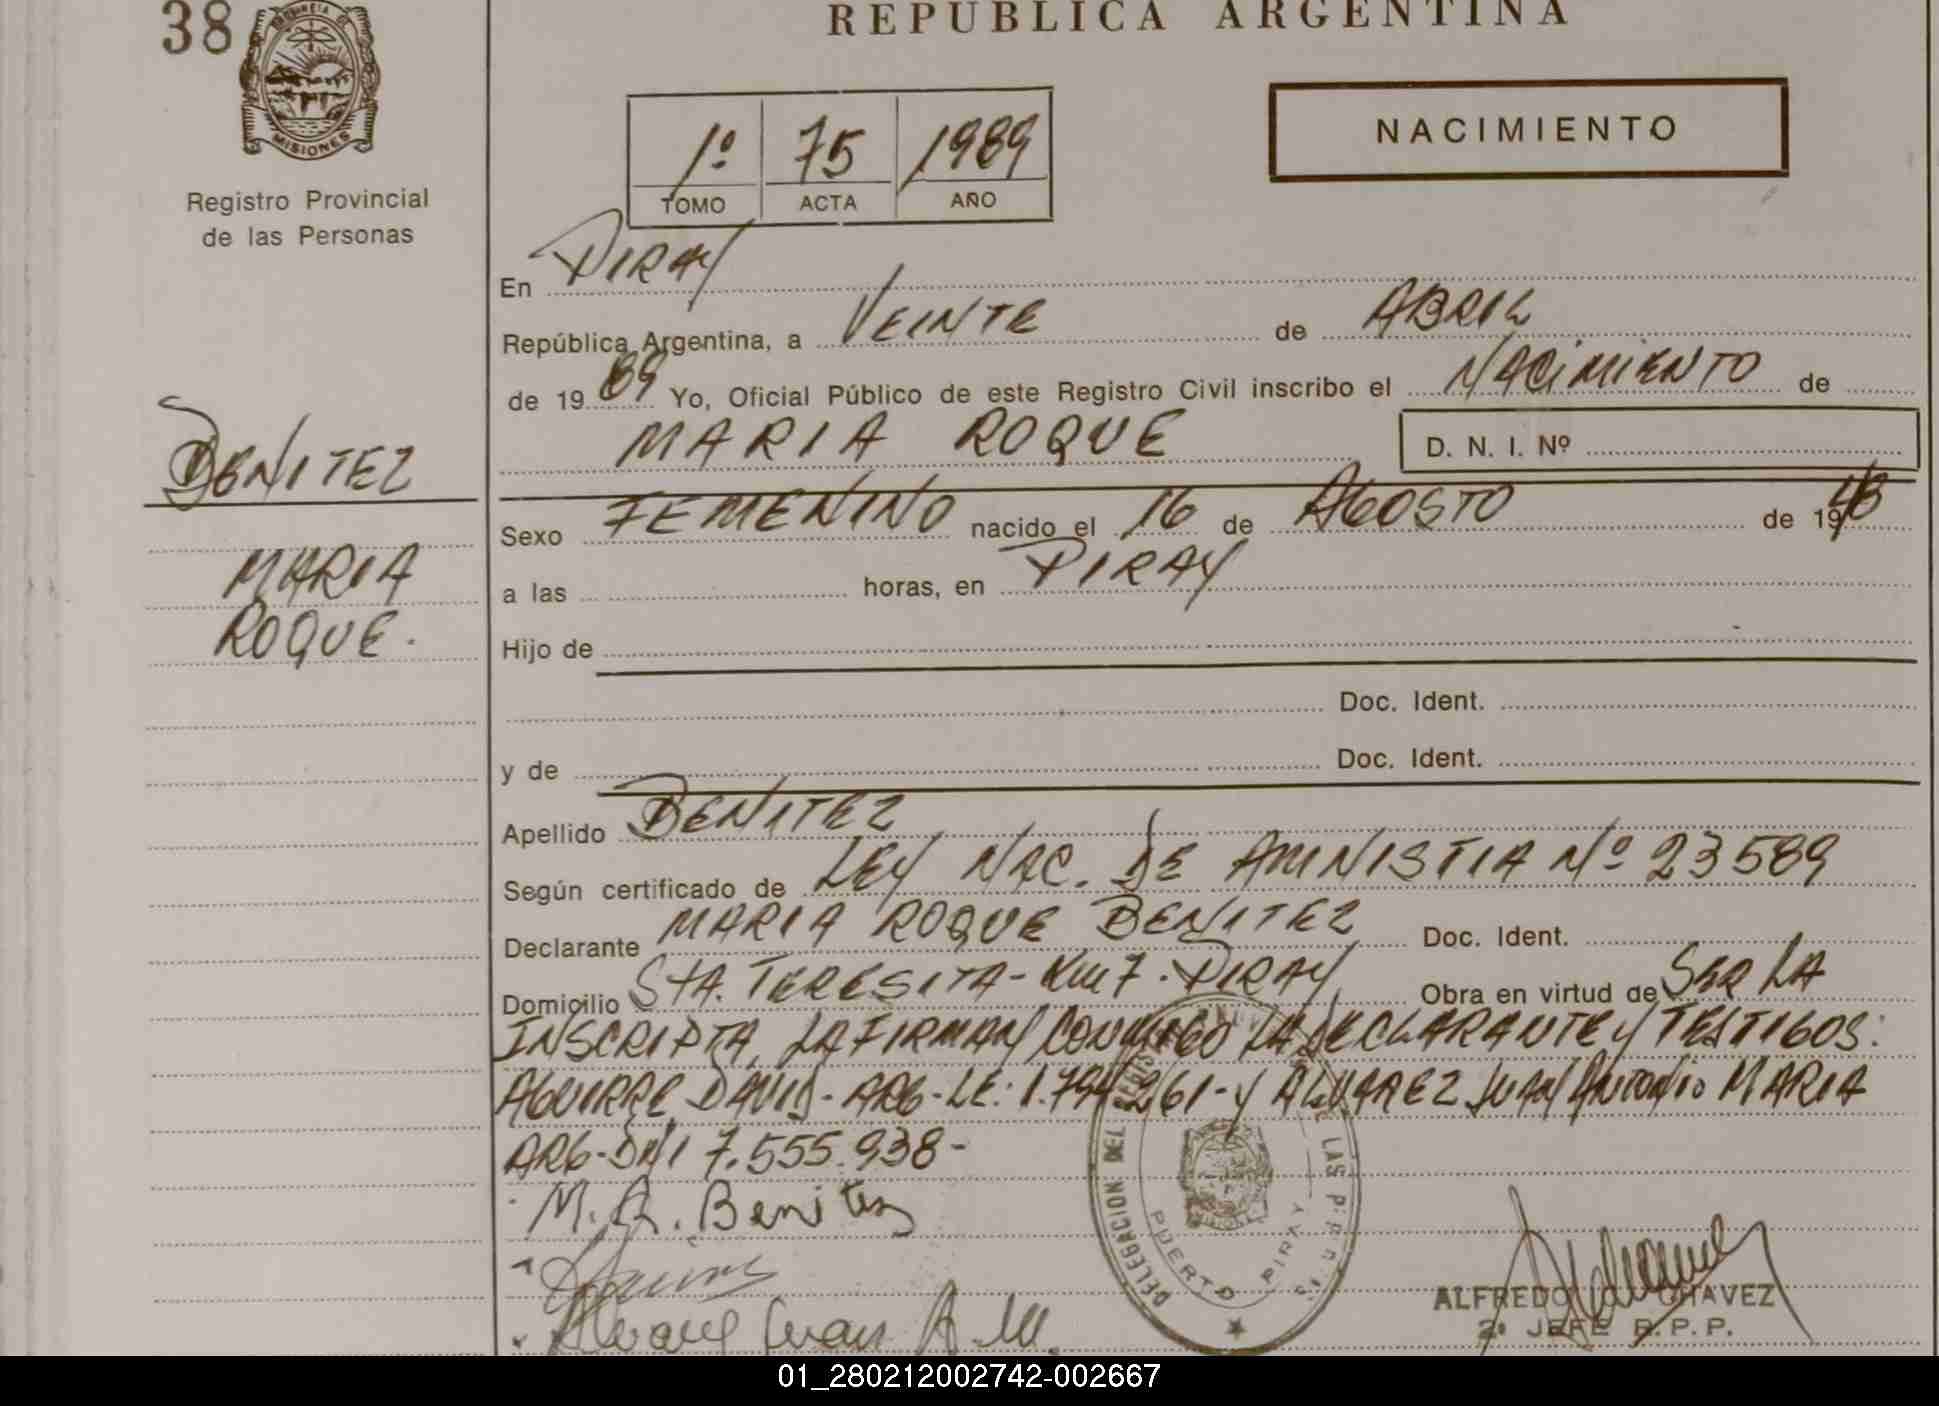 38
PROVINCIA DE
MISIONES
Registro Provincial
de las Personas
BENITEZ
MARIA
ROQUE.
REPUBLICA ARGENTINA
1º 75 1989
TOMO ACTA AÑO
NACIMIENTO
En PIRAY
República Argentina, a VEINTE de ABRIL
de 19 89 Yo, Oficial Público de este Registro Civil inscribo el NACIMIENTO de
MARIA ROQUE D. N. I. Nº
Sexo FEMENINO nacido el 16 de AGOSTO de 1948
a las horas, en PIRAY
Hijo de
Doc. Ident.
y de Doc. Ident.
Apellido BENITEZ
Según certificado de LEY NAC. DE AMNISTIA Nº 23589
Declarante MARIA ROQUE BENITEZ Doc. Ident.
Domicilio STA. TERESITA - Km 7. PIRAY Obra en virtud de SER LA
INSCRIPTA, LA FIRMAN CONMIGO LA DECLARANTE Y TESTIGOS:
AGUIRRE DAVID - ARG - LE: 1.794.261 - Y ALVAREZ JUAN ANTONIO MARIA
ARG - DNI 7.555.938 -
M. R. Benitez
Alvarez Juan A. M.
DELEGACION DEL LAS
PUERTO PIRAY
ALFREDO CHAVEZ
2º JEFE R.P.P.
01_280212002742-002667